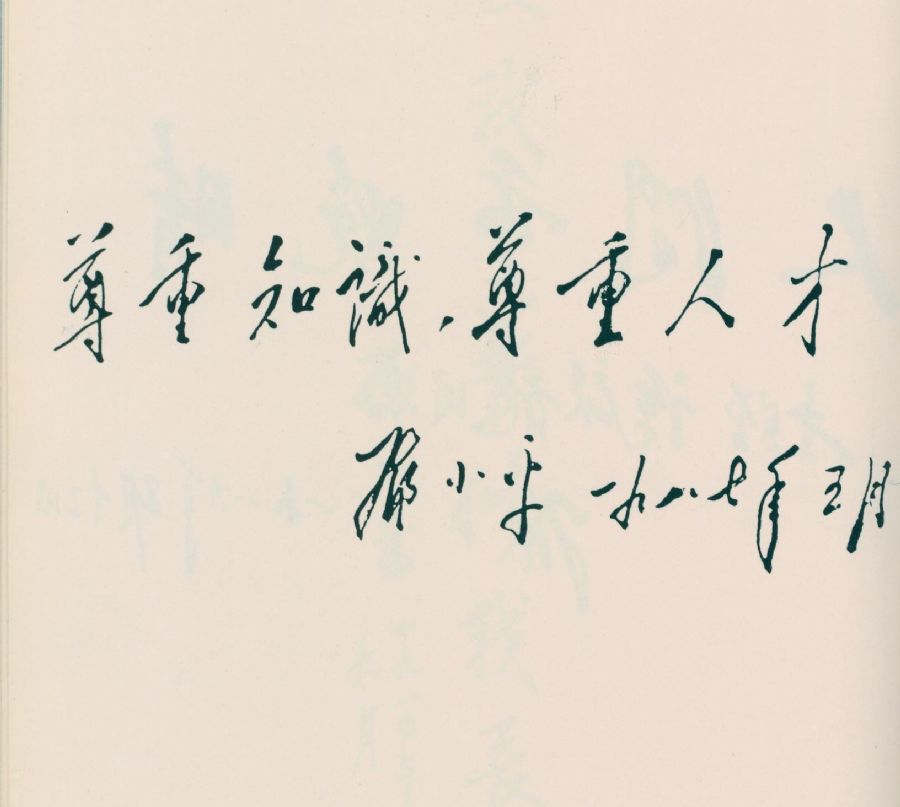 尊重知識，尊重人才
小平 一九八七年五月